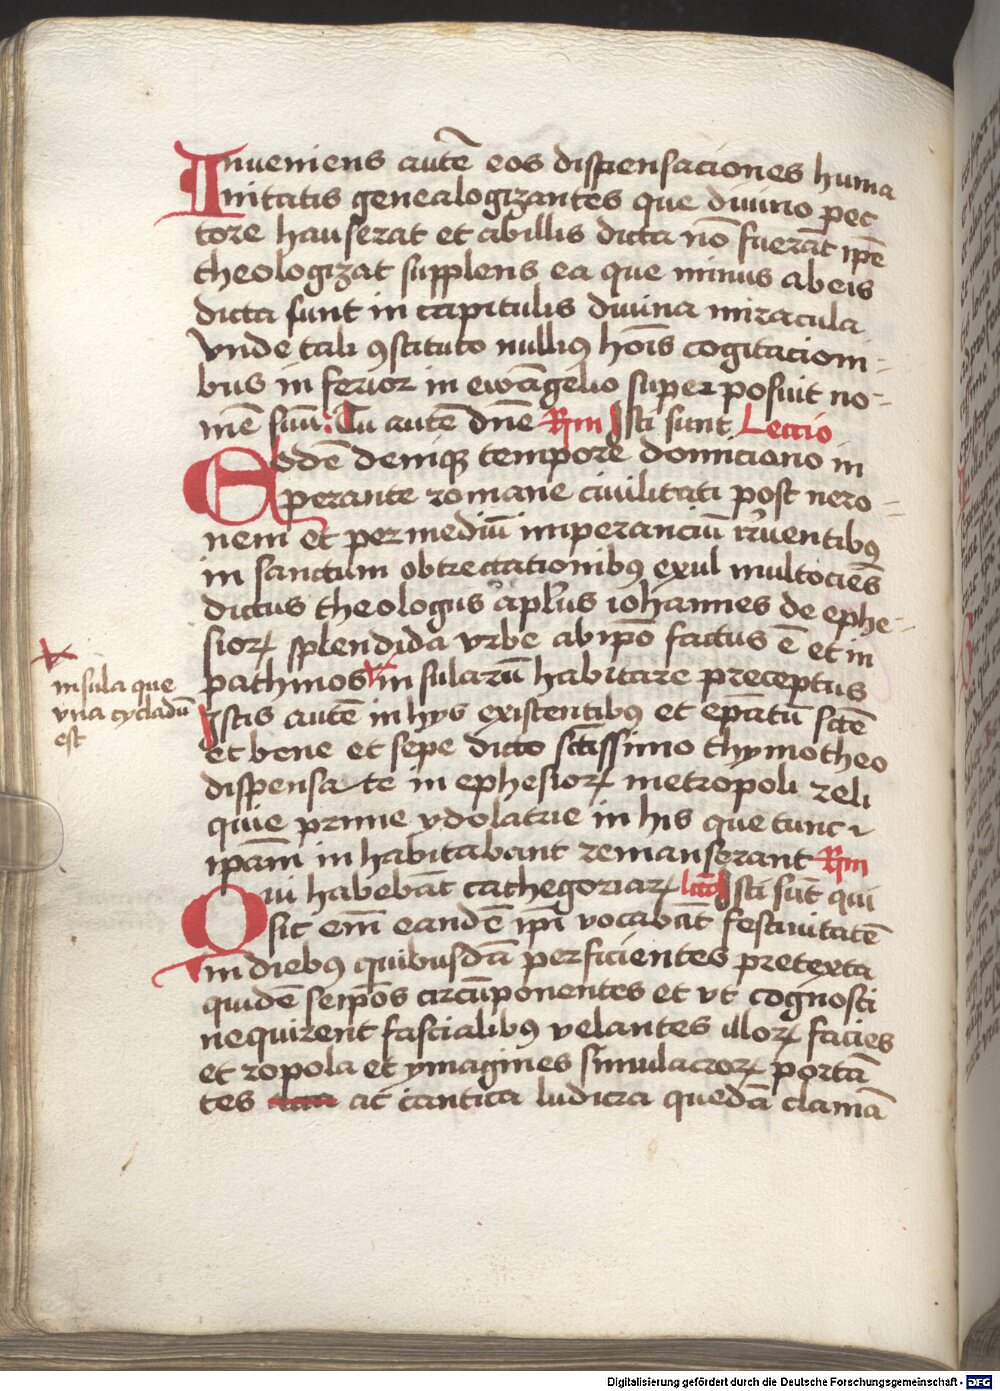 Inueniens autē eos dispensaciones huma
nitatis genealogizantes que diuino pec
tore hauserat et abillis dicta nō fuerāt ip̄e
theologizat supplens ea que minus abeis
dicta sunt in capitulis diuina miracula
vnde tali ꝯstituto nulliꝰ hōis cogitacioni-
bus in ferior in ewāgelio super posuit no-
mē suū: Tu autē dn̄e Rm Isti sunt Lectio
Eodē deniqꝫ tempore domiciano in
perante romane ciuilitati post nero-
nem et per mediū imperanciū irruentibꝰ
in sanctum obtrectationibꝰ exul multociēs
dictus theologus apl̄us iohannes de ephe-
sioꝝ splendida vrbe ab ip̄o factus ē et in
pathmos in sularū habitare preceptus
insula que
vna cycladū
est
Istis autē in hys existentibus et ep̄atū scē
et bene et sepe dicto sc̄issimo thymotheo
dispensate in ephesioꝝ metropoli reli
quie prime ydolatrie in his que tunc
ip̄am in habitabant remanserant Rm
Qui habebāt cathegoriaꝝ Isti sūt qui
sic em̄ eandē ip̄i vocabāt festiuitatē
in diebꝰ quibusdā perficientes pretexta
quidē seip̄os circūponentes et vt cognosci
nequirent fascialibꝰ velantes illoꝝ facies
et ropola et ymagines simulacroꝝ portā
tes ac cantica ludicra quedā clamā
Digitalisierung gefördert durch die Deutsche Forschungsgemeinschaft - DFG